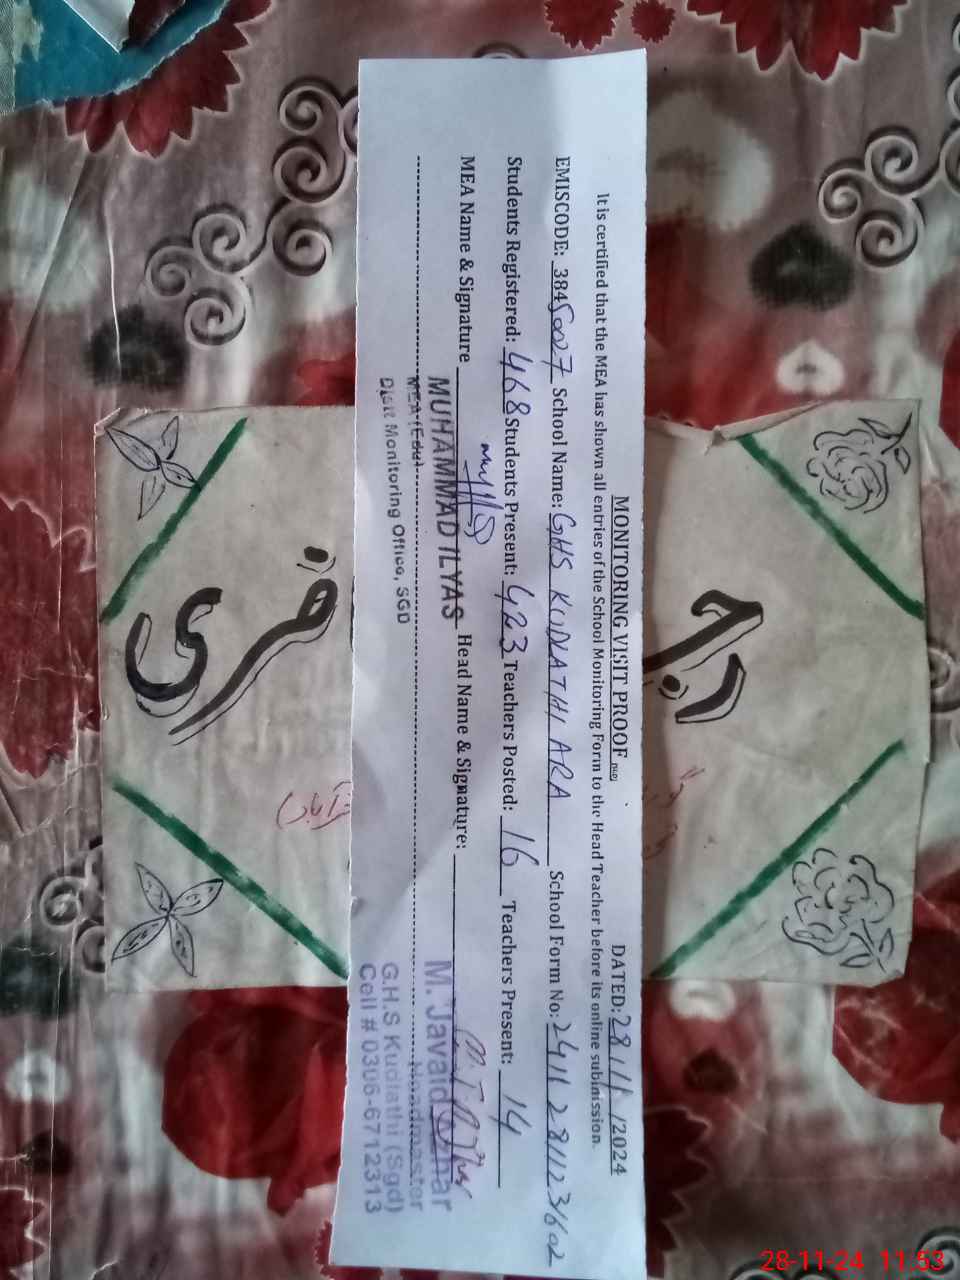 MONITORING VISIT PROOF
DATED: 28/11/2024
It is certified that the MEA has shown all entries of the School Monitoring Form to the Head Teacher before its online submission.
EMISCODE: 38450027 School Name: GHS KUDLATHI ARA School Form No: 2411 2811231602
Students Registered: 468 Students Present: 423 Teachers Posted: 16 Teachers Present: 14
MEA Name & Signature Head Name & Signature:
MUHAMMAD ILYAS
MEA (Edu)
Distt Monitoring Office, SGD
M. Javaid
Headmaster
G.H.S Kudlathi (Sgd)
Cell # 0306-6712313
28-11-24 11:53